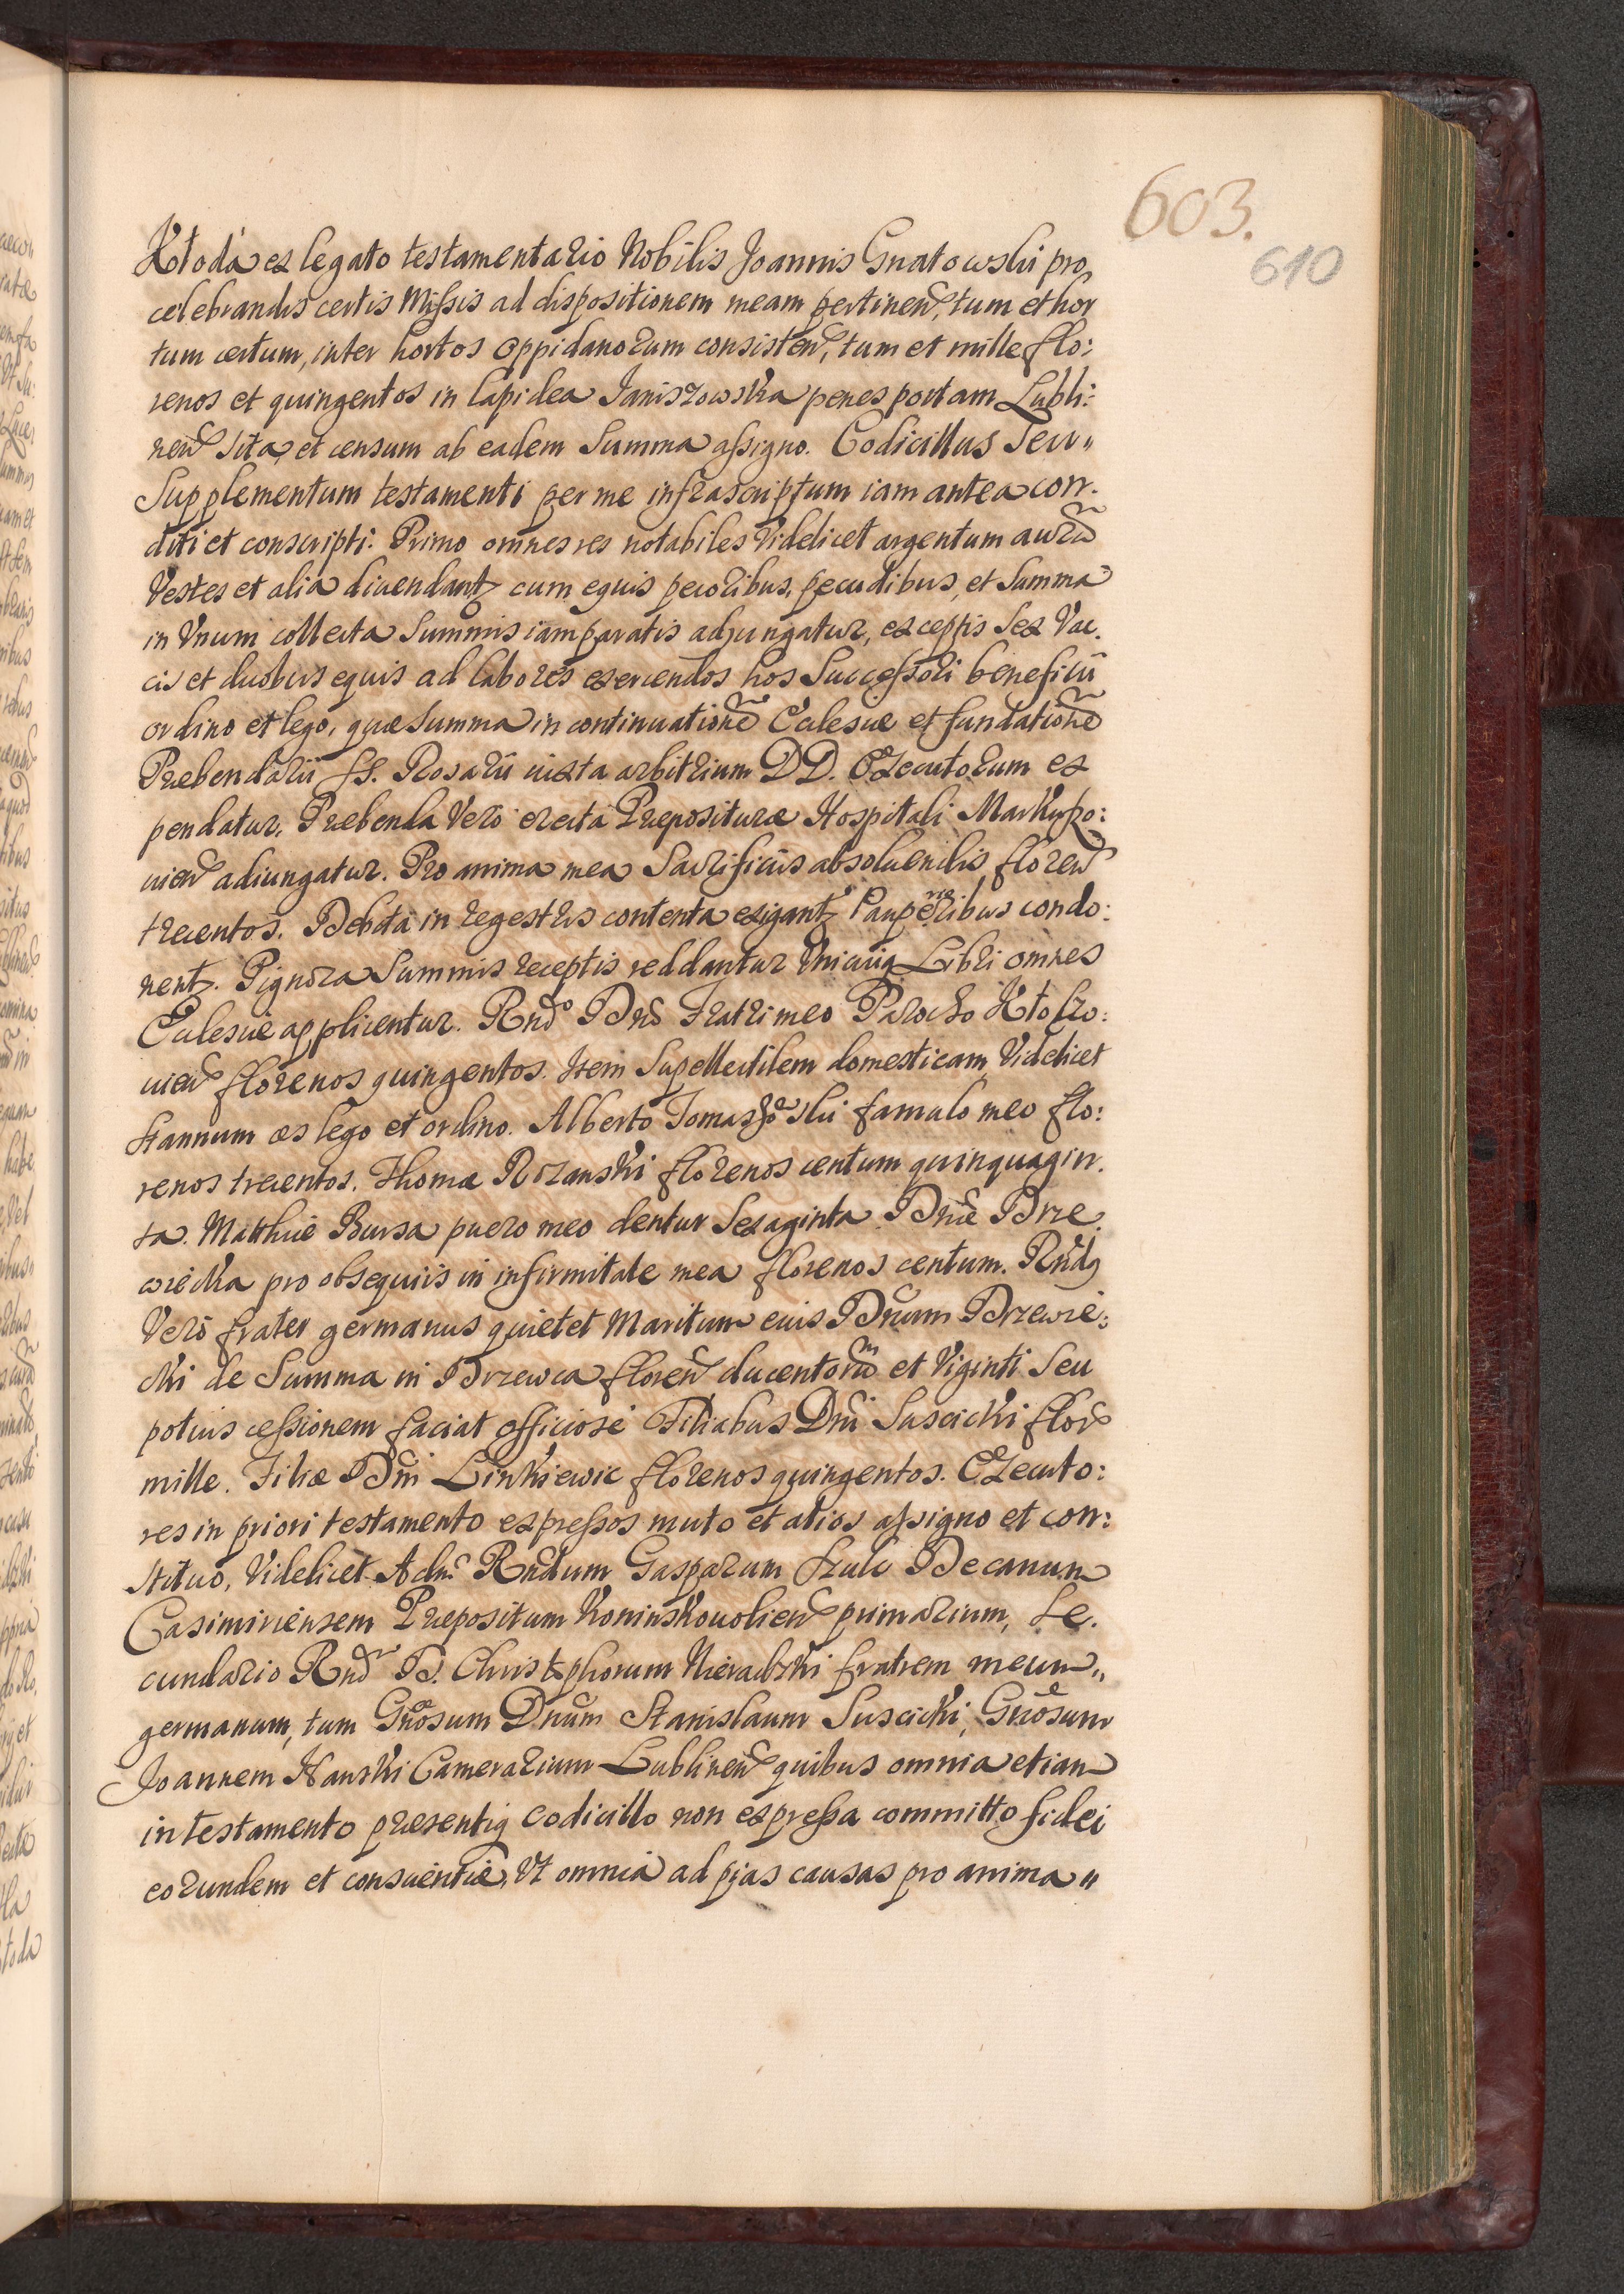 603.
610
Kłoda ex legato testamentario Nobilis Joannis Gnatowski pro
celebrandis certis Missis ad dispositionem meam pertinen̄, tum et hor
tum certum, inter hortos oppidanorum consisten̄, tum et mille flo:
renos et quingentos in lapidea Janiszowska penes portam Lubli:
nen̄ sita, et censum ab eadem Summa assigno. Codicillus Seu "
Supplementum testamenti per me infrascriptum iam antea con-
diti et conscripti. Primo omnes res notabiles Videlicet argentum aurū
Vestes et alia divendantz cum equis pecoribus, pecudibus, et Summa
in Unum collecta Summis iam paratis adjungatur, exceptis Sex Vac-
cis et duobus equis ad labores exercendos hos Successori beneficii
ordino et lego, quæ Summa in continuationē Ecclesiæ et fundationē
Præbendarii SS. Rosarii iuxta arbitrium DD. Executorum ex
pendatur, Præbenda Vero erecta Præpositure Hospitali Markuszo:
vien̄ adiungatur. Pro anima mea Sacrificiis absolvendis floren̄
trecentos. Debita in regestris contenta exigantz Pauperibus condo:
nentz. Pignora Summis receptis reddantur Unicuiq Libri omnes
Ecclesiæ applicentur. Rndo Dno Fratri meo Parocho Kłoczo:
vien̄ florenos quingentos. Item Supellectilem domesticam Videlicet
Stannum æs lego et ordino. Alberto Tomaszowski famulo meo flo:
renos trecentos. Thomæ Rozanski florenos centum quinquagin-
ta. Matthiæ Bursa puero meo dentur Sexaginta Dnæ Drze-
wiecka pro obsequiis in infirmitate mea florenos centum. Rnd9
Vero frater germanus quietet Maritum eius Dnum Drzewie:
cki de Summa in Drzewca floren̄ ducentorū et Viginti Seu
potius cessionem faciat officiose Filiabus Dni Suscicki flor̄
mille. Filiæ Dni Linkiewic florenos quingentos. Executo:
res in priori testamento expressos muto et alios assigno et con:
stituo, Videlicet Adm̄ Rndum Gasparum Szulc Decanum
Casimiriensem Præpositum Koninskovolien̄ primarium, Se-
cundario Rnd D. Christophorum Nieradzki fratrem meum "
germanum, tum Gnosum Dnum Stanislaum Suscicki, Gnosum
Joannem Hanski Camerarium Lublinen̄ quibus omnia etiam
in testamento præsentiq codicillo non expressa committo fidei
eorundem et conscientiæ, Ut omnia ad pias causas pro anima "